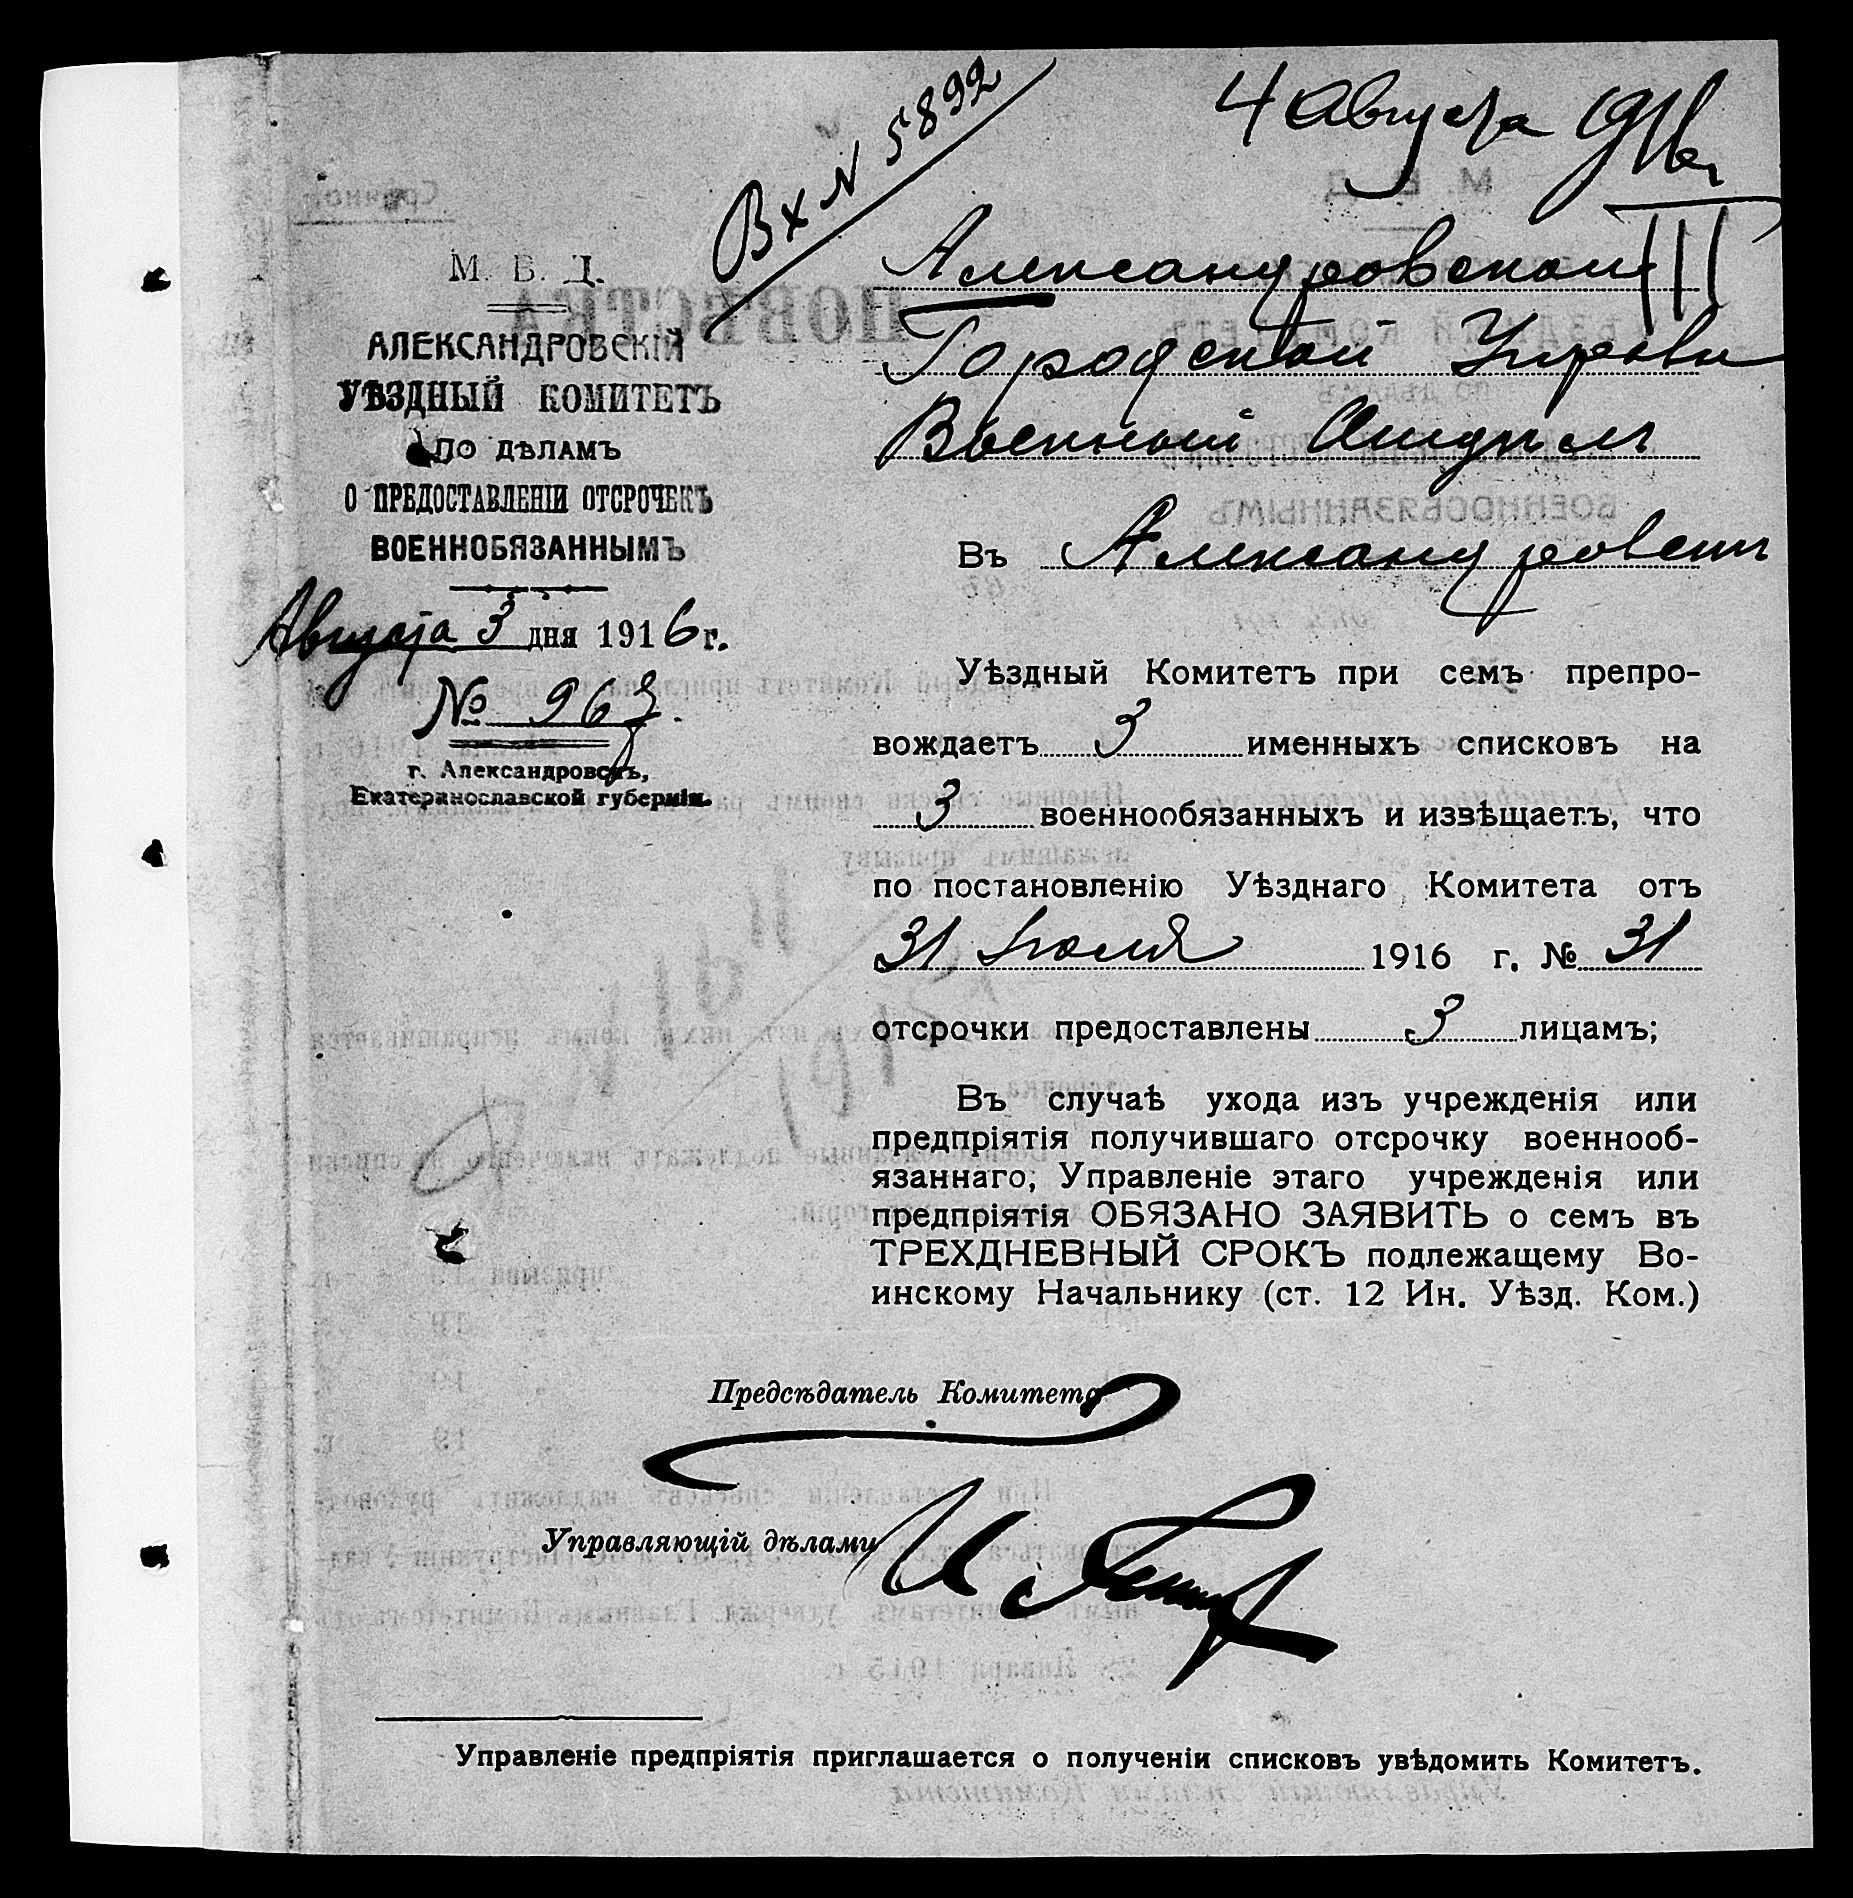 Вх N 5892
4 Августа 1916 г
III
М. В. Д.
АЛЕКСАНДРОВСКІЙ
УѢЗДНЫЙ КОМИТЕТЪ
ПО ДѢЛАМЪ
О ПРЕДОСТАВЛЕНІИ ОТСРОЧЕКЪ
ВОЕННООБЯЗАННЫМЪ
Августа 3 дня 1916 г.
№ 967.
г. Александровскъ,
Екатеринославской губерніи.
Александровской
Городской Управы
Военный Отдѣлъ
Въ Александровскъ
Уѣздный Комитетъ при семъ препро-
вождаетъ 3 именныхъ списковъ на
3 военнообязанныхъ и извѣщаетъ, что
по постановленію Уѣзднаго Комитета отъ
31 Іюля 1916 г. № 31
отсрочки предоставлены 3 лицамъ;
Въ случаѣ ухода изъ учрежденія или
предпріятія получившаго отсрочку военнооб-
язаннаго, Управленіе этаго учрежденія или
предпріятія ОБЯЗАНО ЗАЯВИТЬ о семъ въ
ТРЕХДНЕВНЫЙ СРОКЪ подлежащему Во-
инскому Начальнику (ст. 12 Ин. Уѣзд. Ком.)
Предсѣдатель Комитета
Управляющій дѣлами
Управленіе предпріятія приглашается о полученіи списковъ увѣдомить Комитетъ.